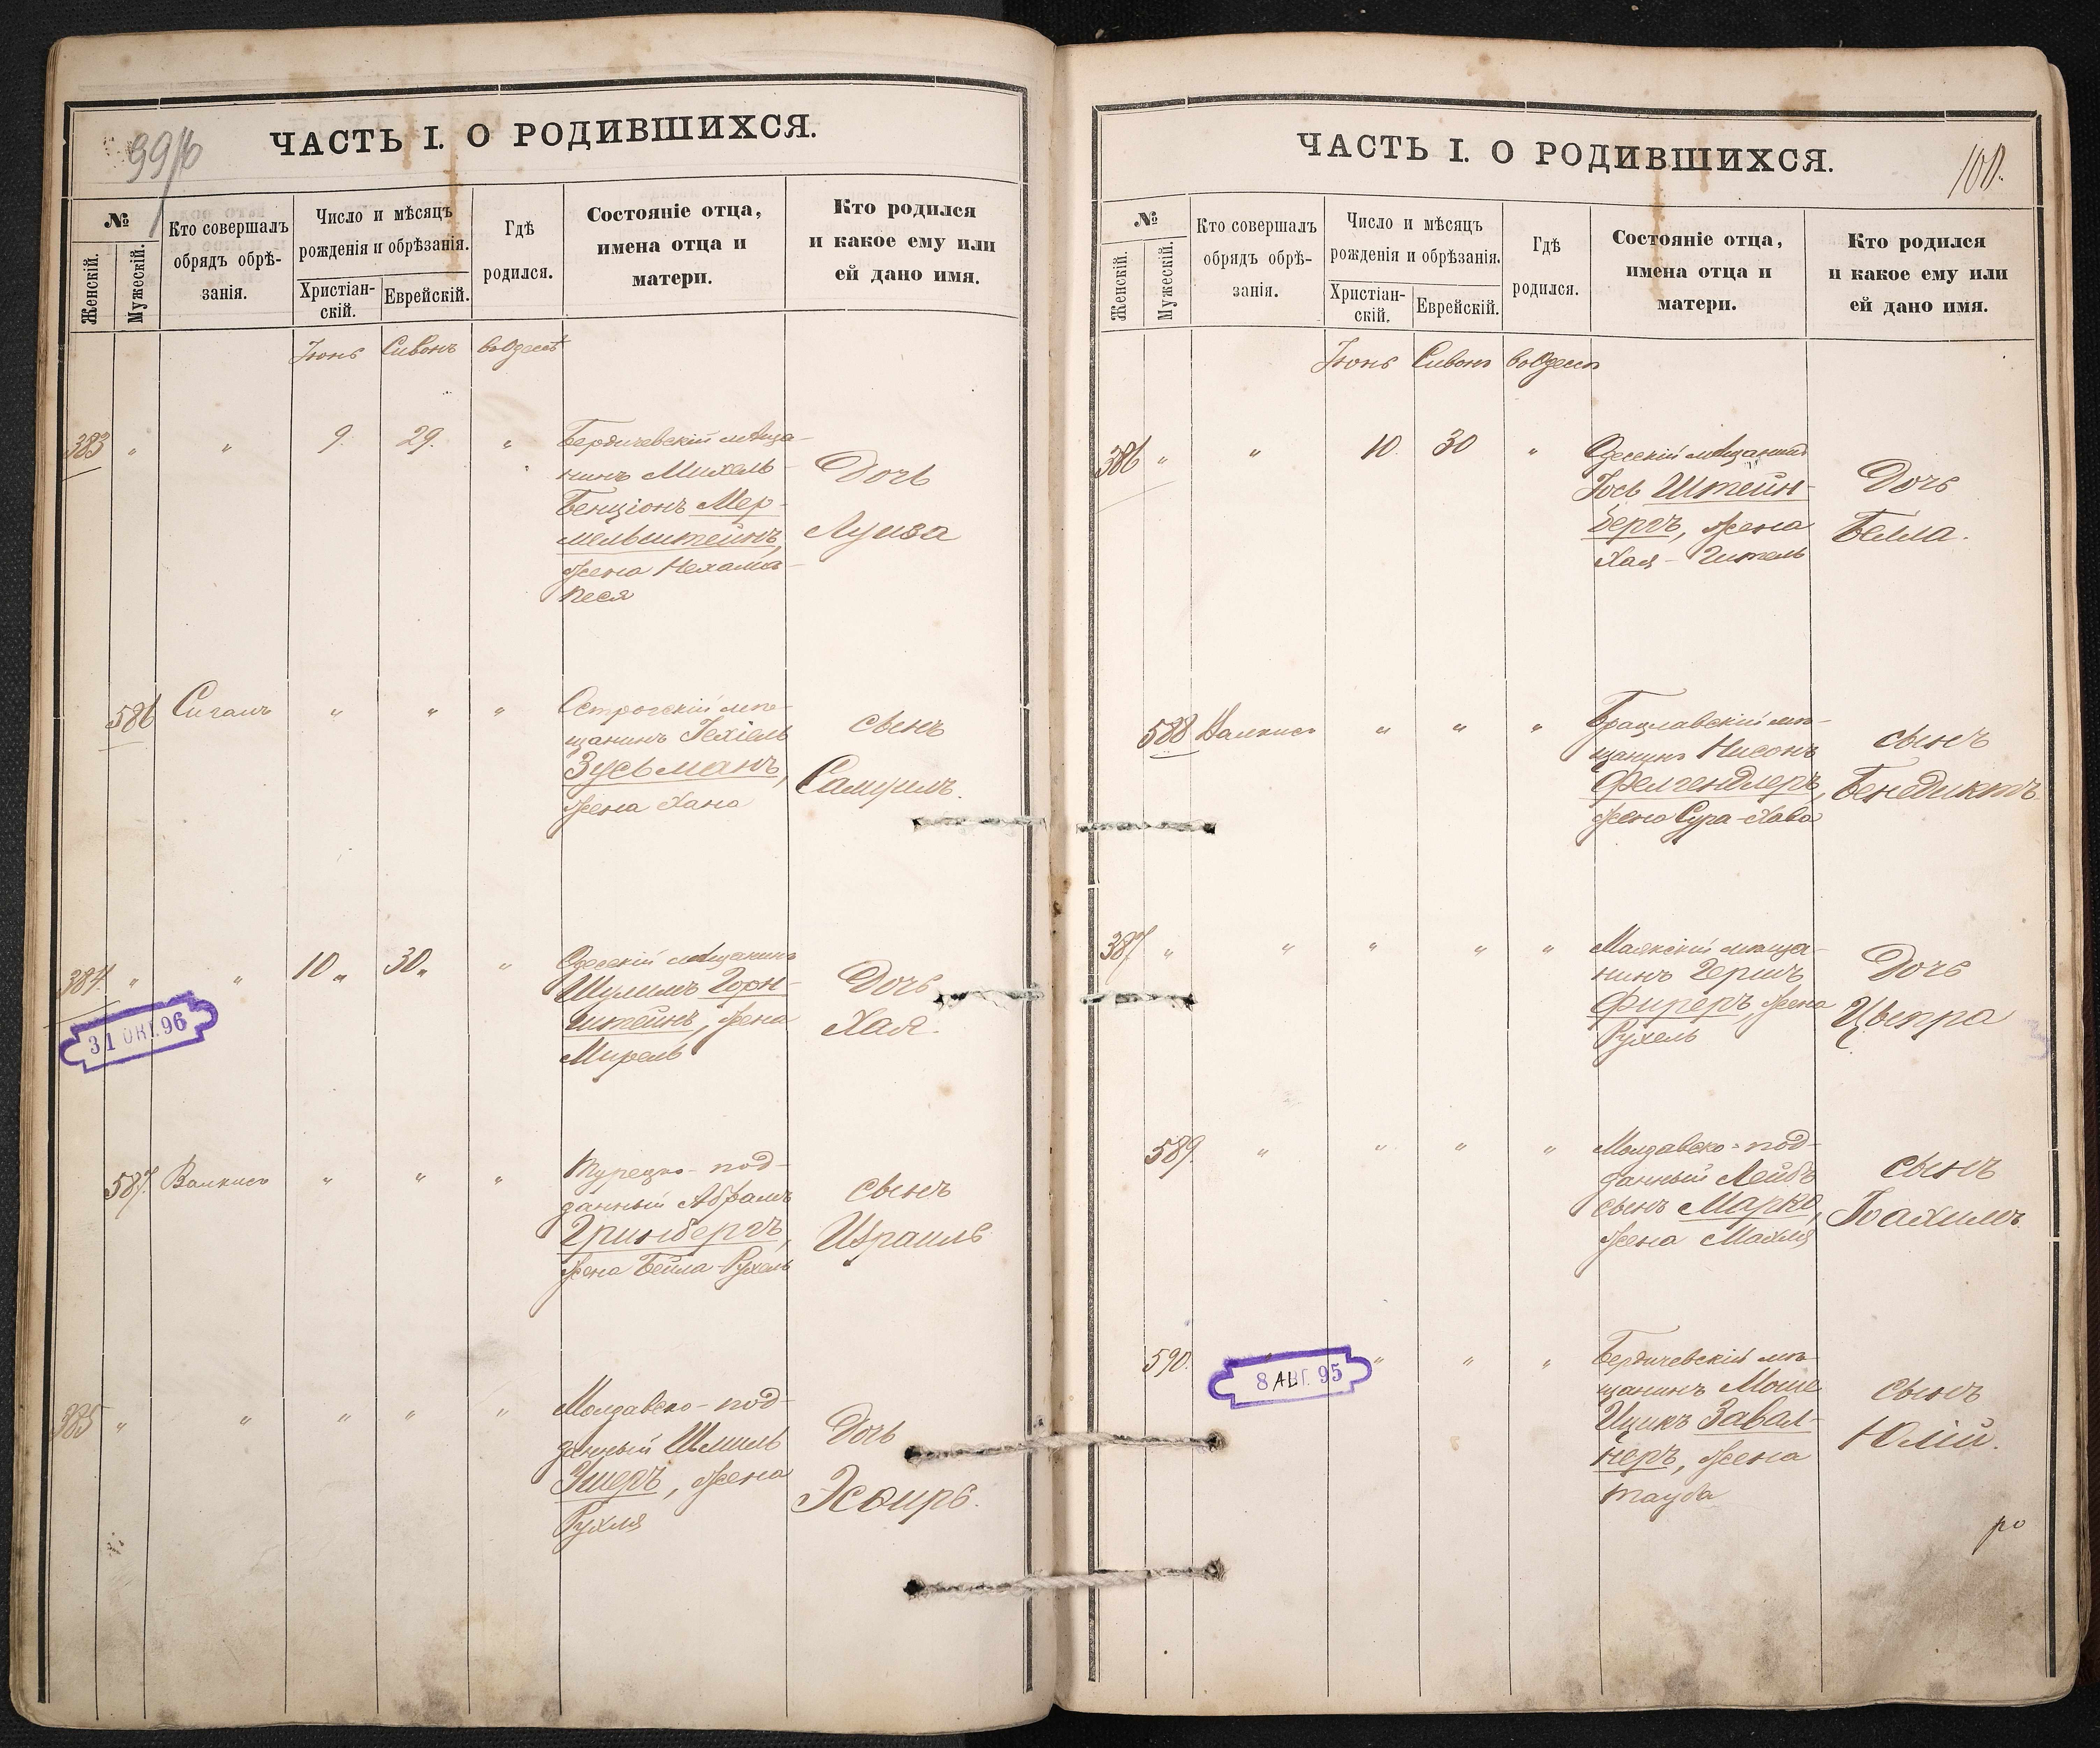 99/б
ЧАСТЬ I. О РОДИВШИХСЯ.
№
Женскій.
Мужескій.
Кто совершалъ
обрядъ обрѣ-
занія.
Число и мѣсяцъ
рожденія и обрѣзанія.
Христіан-
скій.
Еврейскій.
Гдѣ
родился.
Состояніе отца,
имена отца и
матери.
Кто родился
и какое ему или
ей дано имя.
Іюнь Сивонъ въ Одессѣ
383 " " 9. 29. "
Бердичевскій мѣща-
нинъ Михель-
Бенціонъ Мер-
мельштейнъ,
жена Нехама-
Песя
Дочь
Луиза
586 Сигалъ " " "
Острогскій мѣ-
щанинъ Іехіель
Зусьманъ,
жена Хана
сынъ
Самуилъ.
384. " " 10 " 30 " "
Одесскій мѣщанинъ
Шулимъ Горн-
штейнъ, жена
Мирель
Дочь
Хая.
31 ОКТ. 96
587. Валкисъ " " "
Турецко-под-
данный Абрамъ
Гринбергъ,
жена Бейла-Рухель
сынъ
Израиль
385 " " " " "
Молдавско-под-
данный Шмиль
Ушеръ, жена
Рухля
Дочь
Эсѳирь.
ЧАСТЬ I. О РОДИВШИХСЯ.
100.
№
Женскій.
Мужескій.
Кто совершалъ
обрядъ обрѣ-
занія.
Число и мѣсяцъ
рожденія и обрѣзанія.
Христіан-
скій.
Еврейскій.
Гдѣ
родился.
Состояніе отца,
имена отца и
матери.
Кто родился
и какое ему или
ей дано имя.
Іюнь Сивонъ въ Одессѣ
386 " " 10. 30 "
Одесскій мѣщанинъ
Іось Штейн-
бергъ, жена
Хая-Гитель
Дочь
Белла.
588 Валкисъ " " "
Брацлавскій мѣ-
щанинъ Нисонъ
Фельгендлеръ,
жена Сура-Хава
сынъ
Бенедиктъ.
387. " " " " "
Маякскій мѣща-
нинъ Гершъ
Фиреръ, жена
Рухель
Дочь
Ципра
589. " " " "
Молдавско-под-
данный Лейбъ
сынъ Марко,
жена Махля
сынъ
Іоахимъ.
590. " " " "
8 АВГ. 95
Бердичевскій мѣ-
щанинъ Моше
Ицикъ Завал-
неръ, жена
Тауба
сынъ
Юлій.
ро